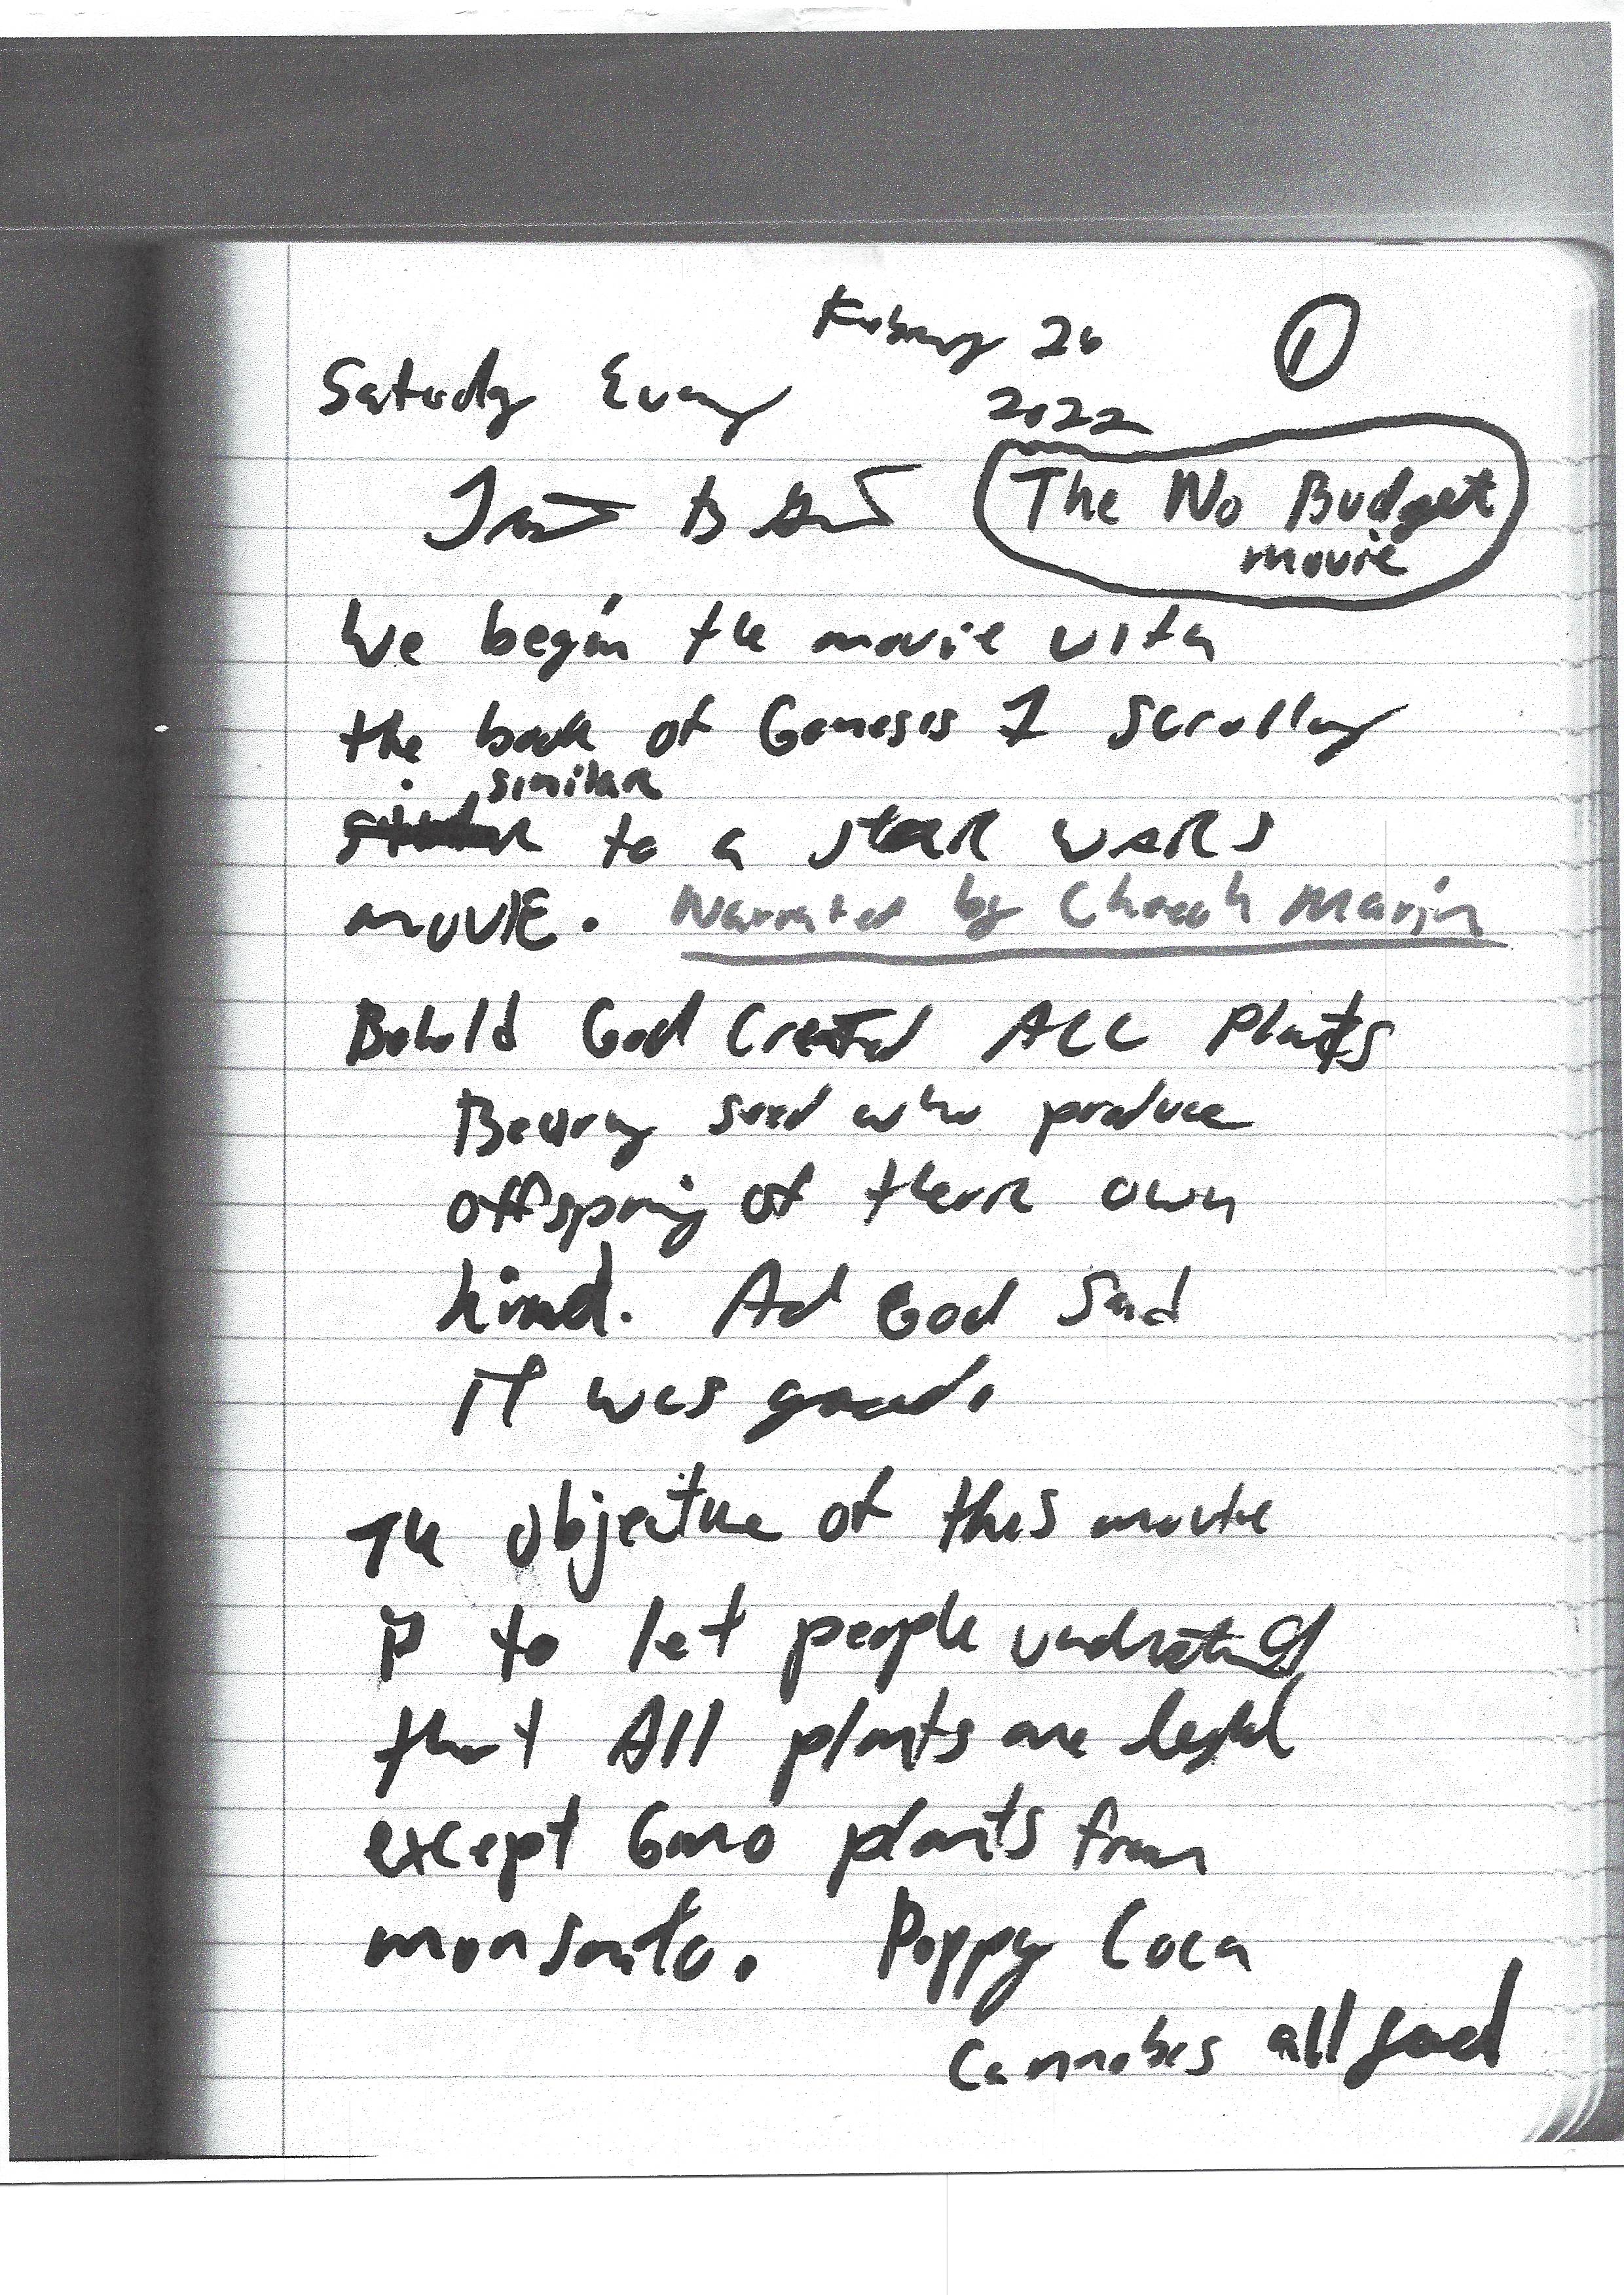 February 26
①
Saturday Evening
2022
The No Budget
movie
We begin the movie with
the book of Genesis 1 scrolling
similar
to a star wars
movie. Narrated by Cheech Marin
Behold God Created ALL Plants
Bearing seed who produce
offspring of their own
kind. And God Said
it was good.
The objective of this movie
is to let people understand
that All plants are legal
except Gmo plants from
monsanto. Poppy Coca
Cannabis all good